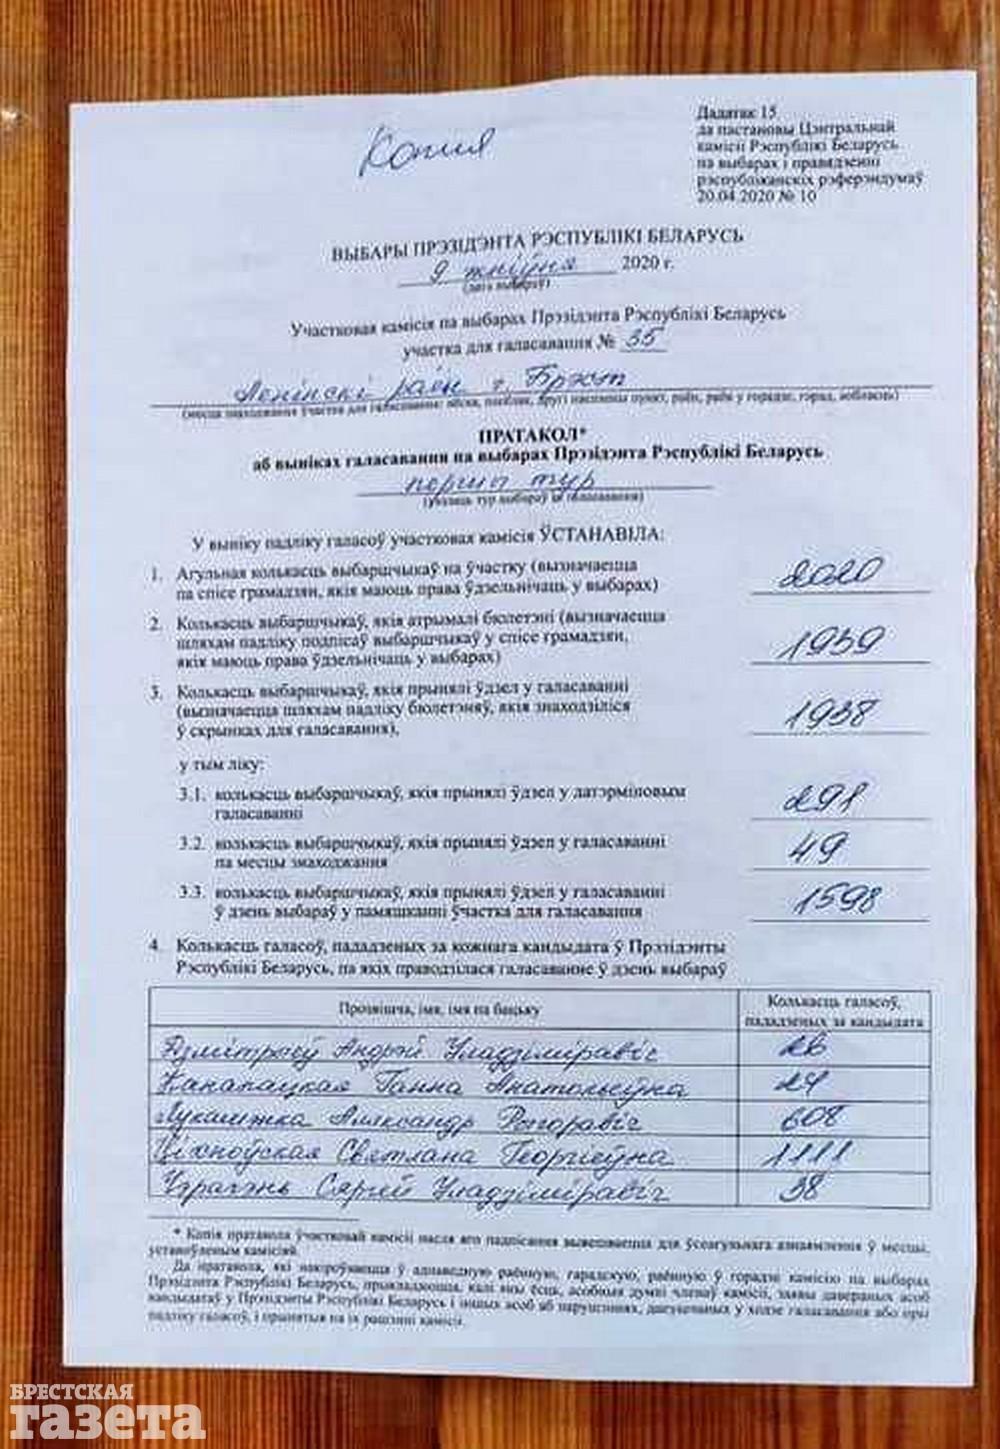 Копия
Дадатак 15
да пастановы Цэнтральнай
камісіі Рэспублікі Беларусь
па выбарах і правядзенні
рэспубліканскіх рэферэндумаў
20.04.2020 № 10
ВЫБАРЫ ПРЭЗІДЭНТА РЭСПУБЛІКІ БЕЛАРУСЬ
9 жніўня 2020 г.
(дата выбараў)
Участковая камісія па выбарах Прэзідэнта Рэспублікі Беларусь
участка для галасавання № 35
Ленінскі раён г. Брэст
(месца знаходжання участка для галасавання: вёска, пасёлак, другі населены пункт, раён, раён у горадзе, горад, вобласць)
ПРАТАКОЛ*
аб выніках галасавання на выбарах Прэзідэнта Рэспублікі Беларусь
першы тур
(указаць тур выбараў ці галасавання)
У выніку падліку галасоў участковая камісія ЎСТАНАВІЛА:
1. Агульная колькасць выбаршчыкаў на ўчастку (вызначаецца
па спісе грамадзян, якія маюць права ўдзельнічаць у выбарах) 2020
2. Колькасць выбаршчыкаў, якія атрымалі бюлетэні (вызначаецца
шляхам падліку подпісаў выбаршчыкаў у спісе грамадзян,
якія маюць права ўдзельнічаць у выбарах) 1939
3. Колькасць выбаршчыкаў, якія прынялі ўдзел у галасаванні
(вызначаецца шляхам падліку бюлетэняў, якія знаходзіліся
ў скрынках для галасавання), 1938
у тым ліку:
3.1. колькасць выбаршчыкаў, якія прынялі ўдзел у датэрміновым
галасаванні 291
3.2. колькасць выбаршчыкаў, якія прынялі ўдзел у галасаванні
па месцы знаходжання 49
3.3. колькасць выбаршчыкаў, якія прынялі ўдзел у галасаванні
ў дзень выбараў у памяшканні ўчастка для галасавання 1598
4. Колькасць галасоў, пададзеных за кожнага кандыдата ў Прэзідэнты
Рэспублікі Беларусь, па якіх праводзілася галасаванне ў дзень выбараў
Прозвішча, імя, імя па бацьку
Колькасць галасоў,
пададзеных за кандыдата
Дзмітрыеў Андрэй Уладзіміравіч 26
Канапацкая Ганна Анатольеўна 24
Лукашэнка Аляксандр Рыгоравіч 608
Ціхноўская Святлана Георгіеўна 1111
Чэрачэнь Сяргей Уладзіміравіч 38
* Копія пратакола ўчастковай камісіі пасля яго падпісання вывешваецца для ўсеагульнага азнаямлення ў месцы,
устаноўленым камісіяй.
Да пратакола, які накіроўваецца ў адпаведную раённую, гарадскую, раённую ў горадзе камісію па выбарах
Прэзідэнта Рэспублікі Беларусь, прыкладаюцца, калі яны ёсць, асобныя думкі членаў камісіі, заявы давераных асоб
кандыдатаў у Прэзідэнты Рэспублікі Беларусь і іншых асоб аб парушэннях, дапушчаных у ходзе галасавання або пры
падліку галасоў, і прынятыя па іх рашэнні камісіі.
БРЕСТСКАЯ
газета